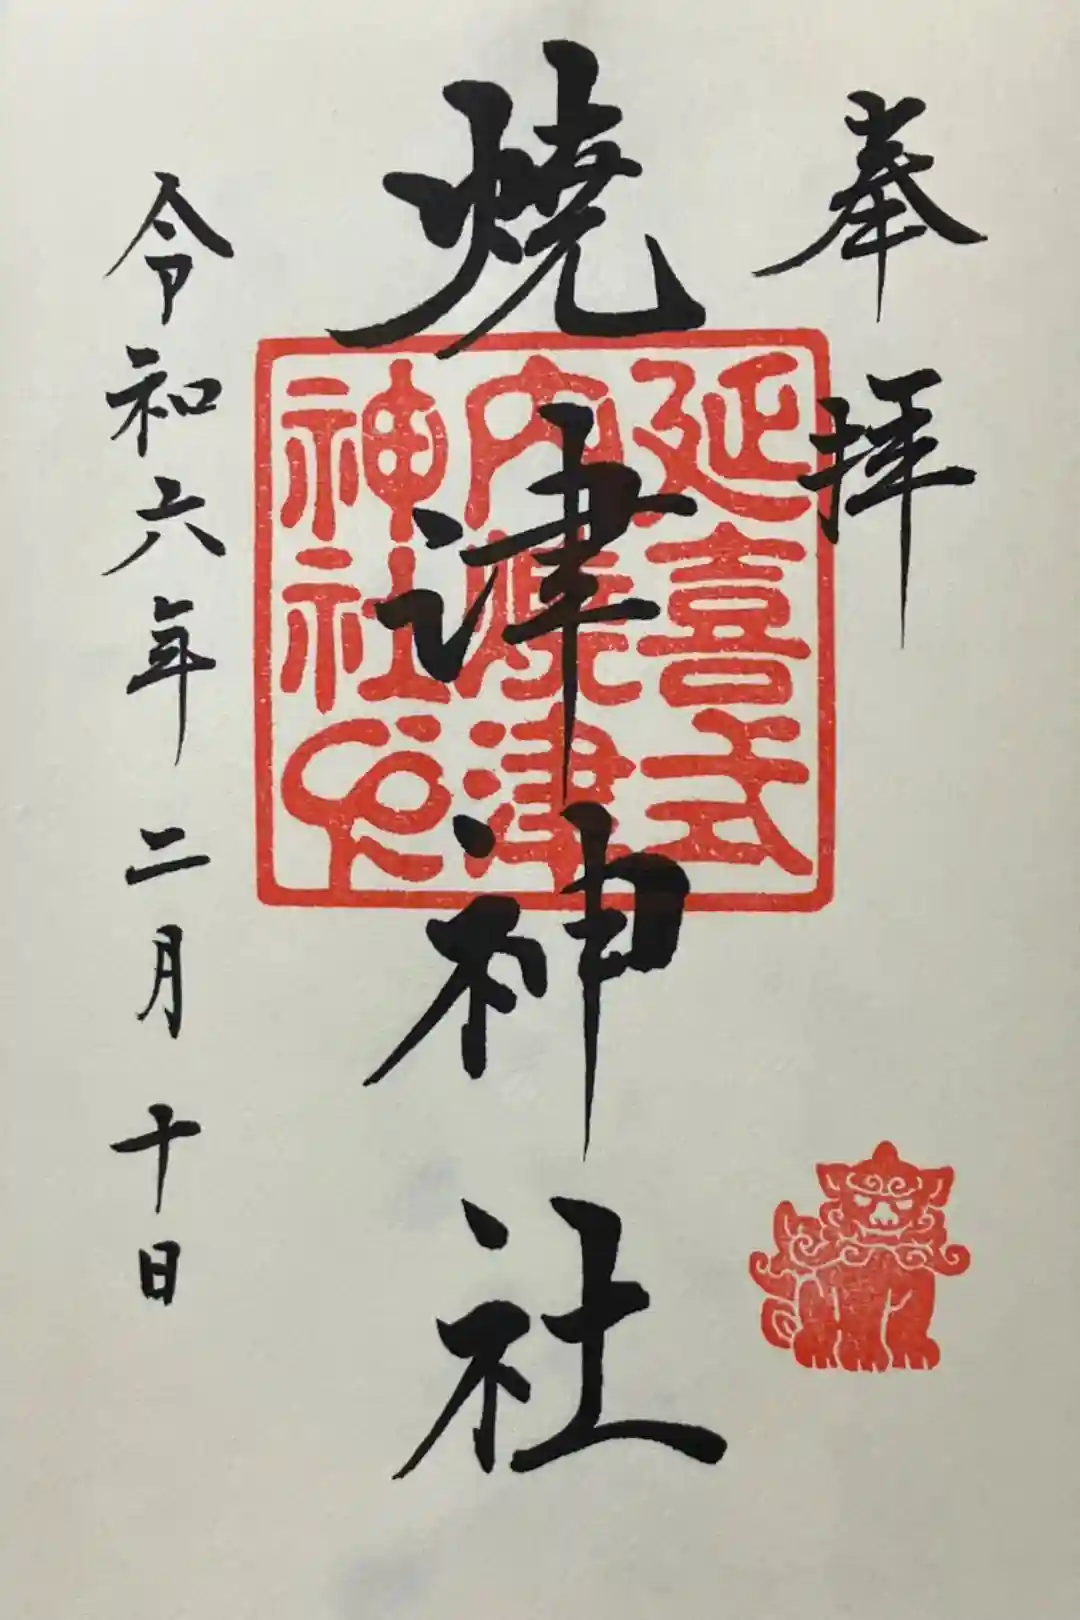 奉拝
燒津神社
延喜式
内燒津
神社印
令和六年二月十日